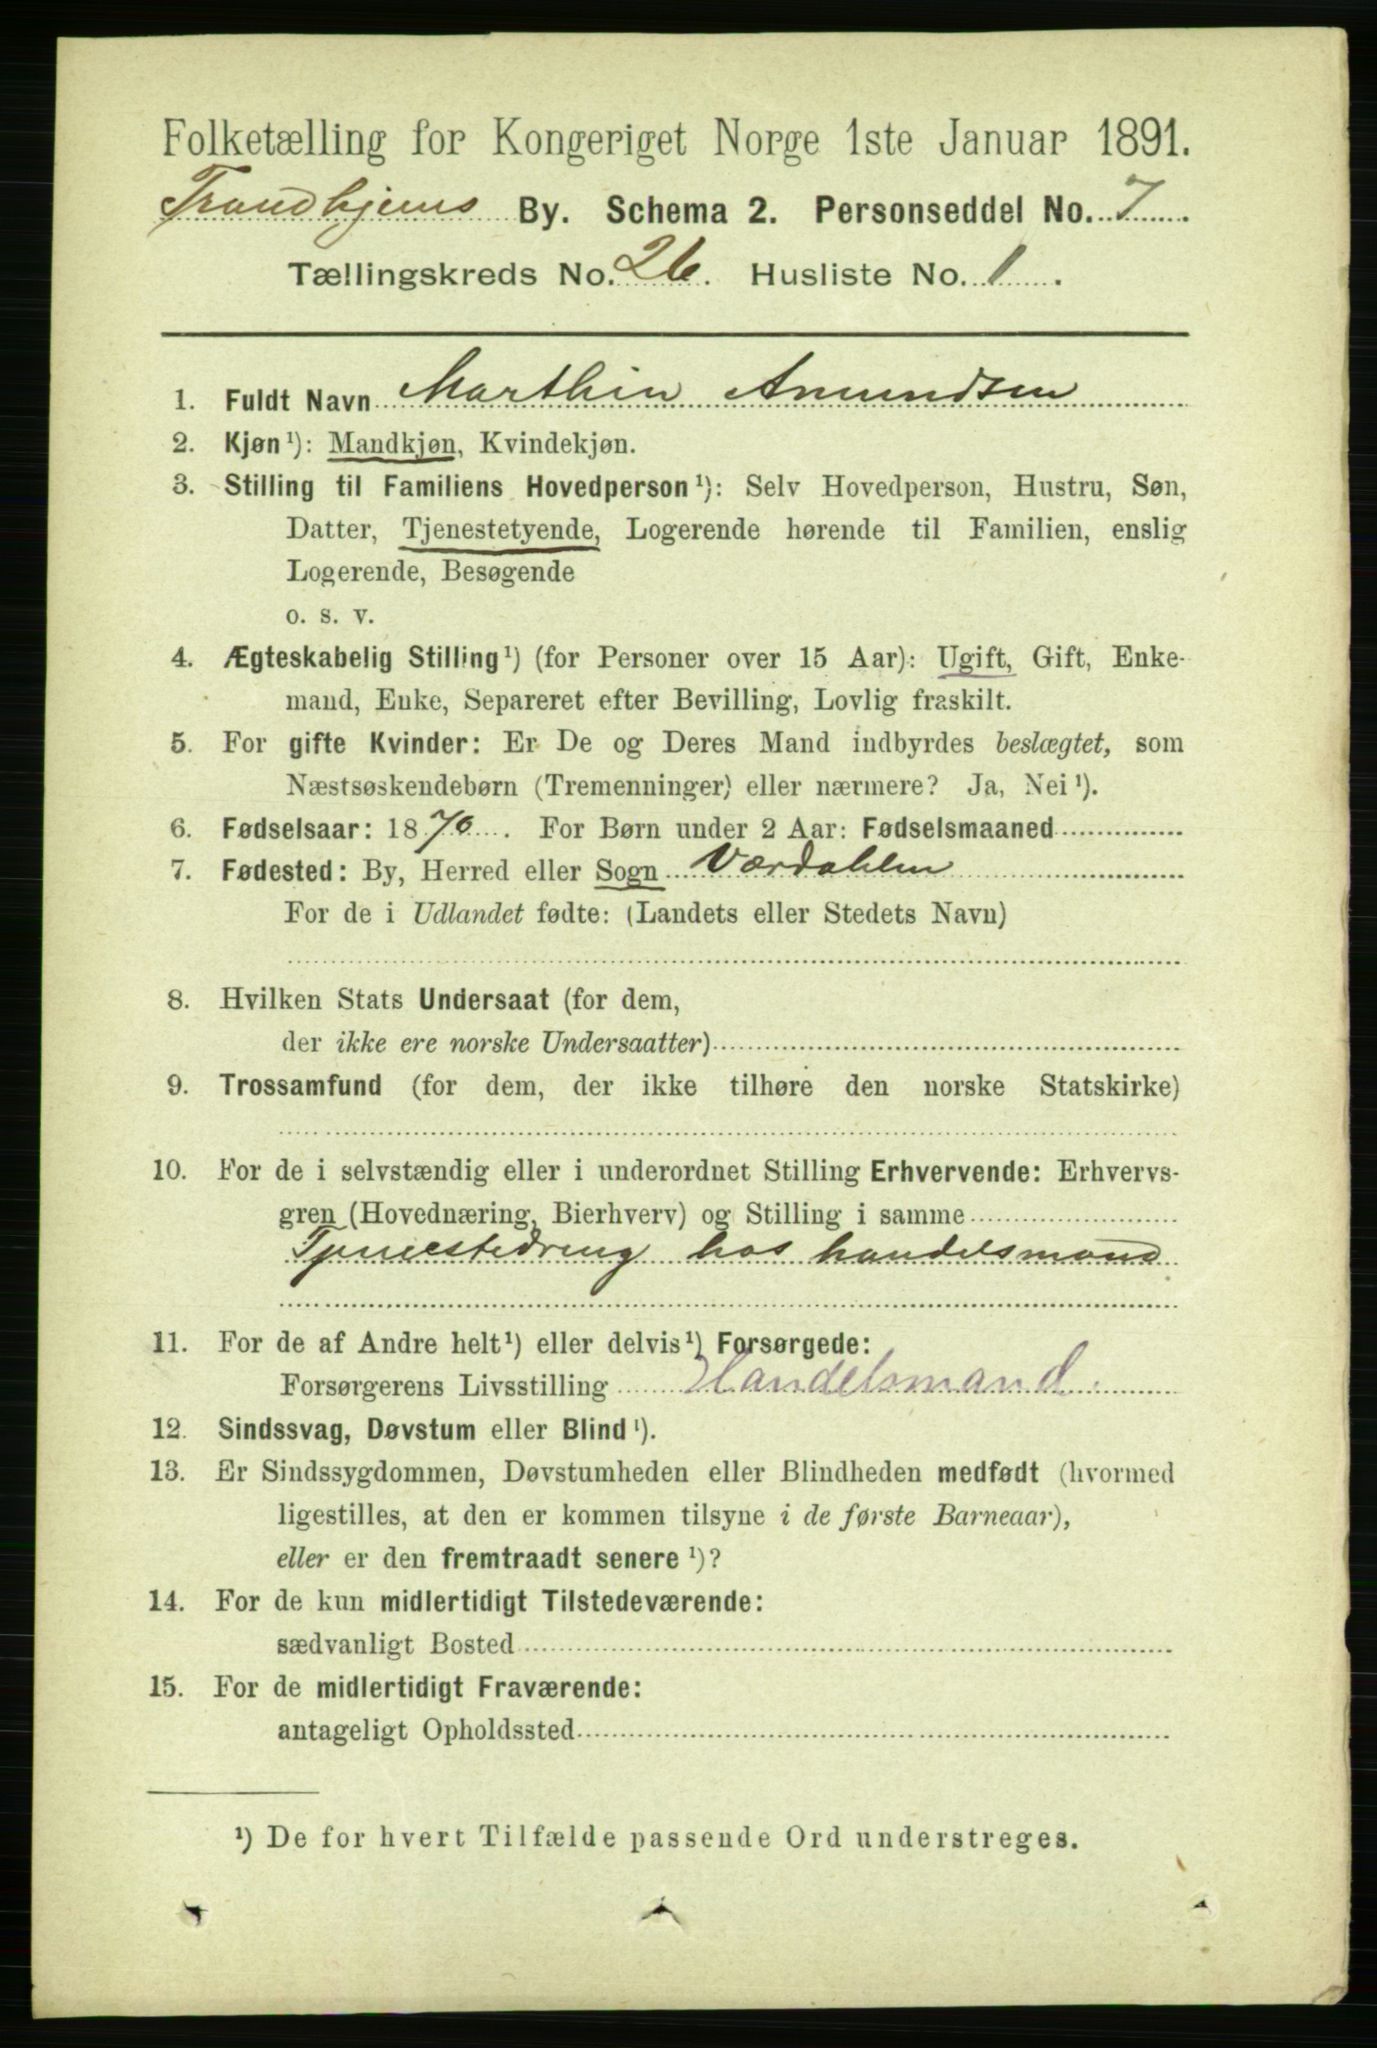 Folketælling for Kongeriget Norge 1ste Januar 1891.
Trondhjems By. Schema 2. Personseddel No. 7.
Tællingskreds No. 26. Husliste No. 1.
1. Fuldt Navn Marthin Amundsen
2. Kjøn¹): Mandkjøn, Kvindekjøn.
3. Stilling til Familiens Hovedperson¹): Selv Hovedperson, Hustru, Søn,
Datter, Tjenestetyende, Logerende hørende til Familien, enslig
Logerende, Besøgende
o. s. v.
4. Ægteskabelig Stilling¹) (for Personer over 15 Aar): Ugift, Gift, Enke-
mand, Enke, Separeret efter Bevilling, Lovlig fraskilt.
5. For gifte Kvinder: Er De og Deres Mand indbyrdes beslægtet, som
Næstsøskendebørn (Tremenninger) eller nærmere? Ja, Nei¹).
6. Fødselsaar: 1870. For Børn under 2 Aar: Fødselsmaaned
7. Fødested: By, Herred eller Sogn Værdahlen
For de i Udlandet fødte: (Landets eller Stedets Navn)
8. Hvilken Stats Undersaat (for dem,
der ikke ere norske Undersaatter)
9. Trossamfund (for dem, der ikke tilhøre den norske Statskirke)
10. For de i selvstændig eller i underordnet Stilling Erhvervende: Erhvervs-
gren (Hovednæring, Bierhverv) og Stilling i samme
Tjenestedreng hos handelsmand
11. For de af Andre helt¹) eller delvis¹) Forsørgede:
Forsørgerens Livsstilling Handelsmand.
12. Sindssvag, Døvstum eller Blind¹).
13. Er Sindssygdommen, Døvstumheden eller Blindheden medfødt (hvormed
ligestilles, at den er kommen tilsyne i de første Barneaar),
eller er den fremtraadt senere¹)?
14. For de kun midlertidigt Tilstedeværende:
sædvanligt Bosted
15. For de midlertidigt Fraværende:
antageligt Opholdssted
¹) De for hvert Tilfælde passende Ord understreges.